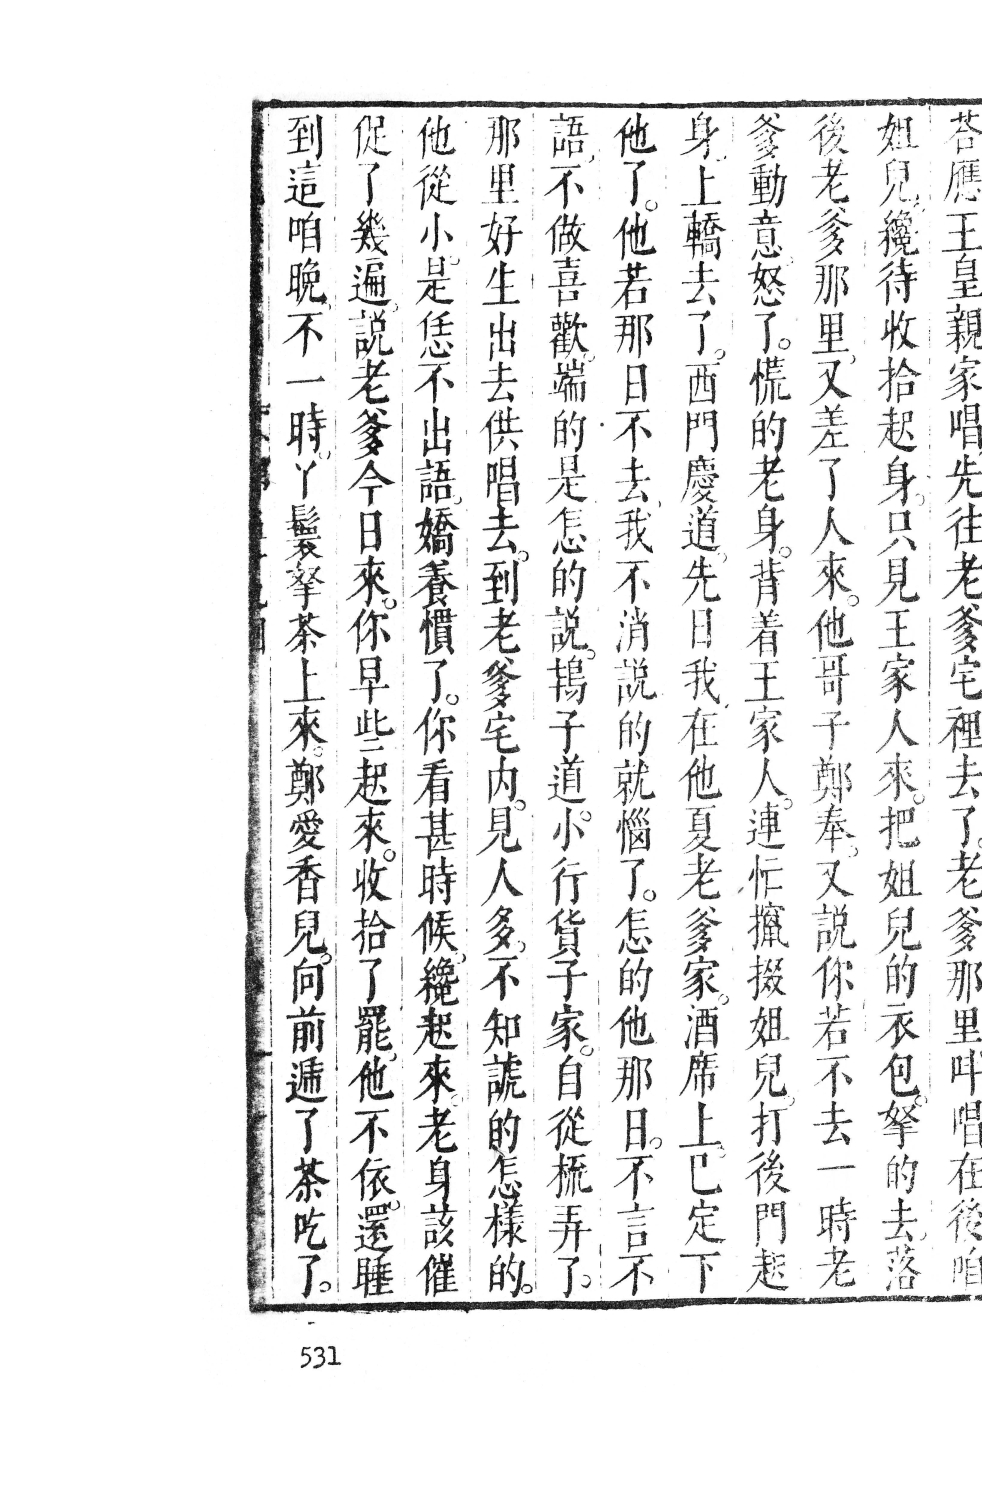 荅應王皇親家唱先往老爹宅裡去了。老爹那里叫唱在後咱
姐兒纔待收拾起身。只見王家人來。把姐兒的衣包。拏的去。落
後老爹那里。又差了人來。他哥子鄭奉。又説你若不去一時老
爹動意怒了。慌的老身。背着王家人。連忙攛掇姐兒。打後門起
身。上轎去了。西門慶道。先日我在他夏老爹家。酒席上。已定下
他了。他若那日不去。我不消説的就惱了。怎的他那日。不言不
語。不做喜歡。端的是怎的説。鴇子道。小行貨子家。自從梳弄了。
那里好生出去供唱去。到老爹宅内。見人多。不知諕的怎樣的。
他從小。是恁不出語。嬌養慣了。你看甚時候。纔起來。老身該催
促了幾遍。説老爹今日來。你早些起來。收拾了罷。他不依。還睡
到這咱晚。不一時。丫鬟拏茶上來。鄭愛香兒。向前遞了茶吃了。
531